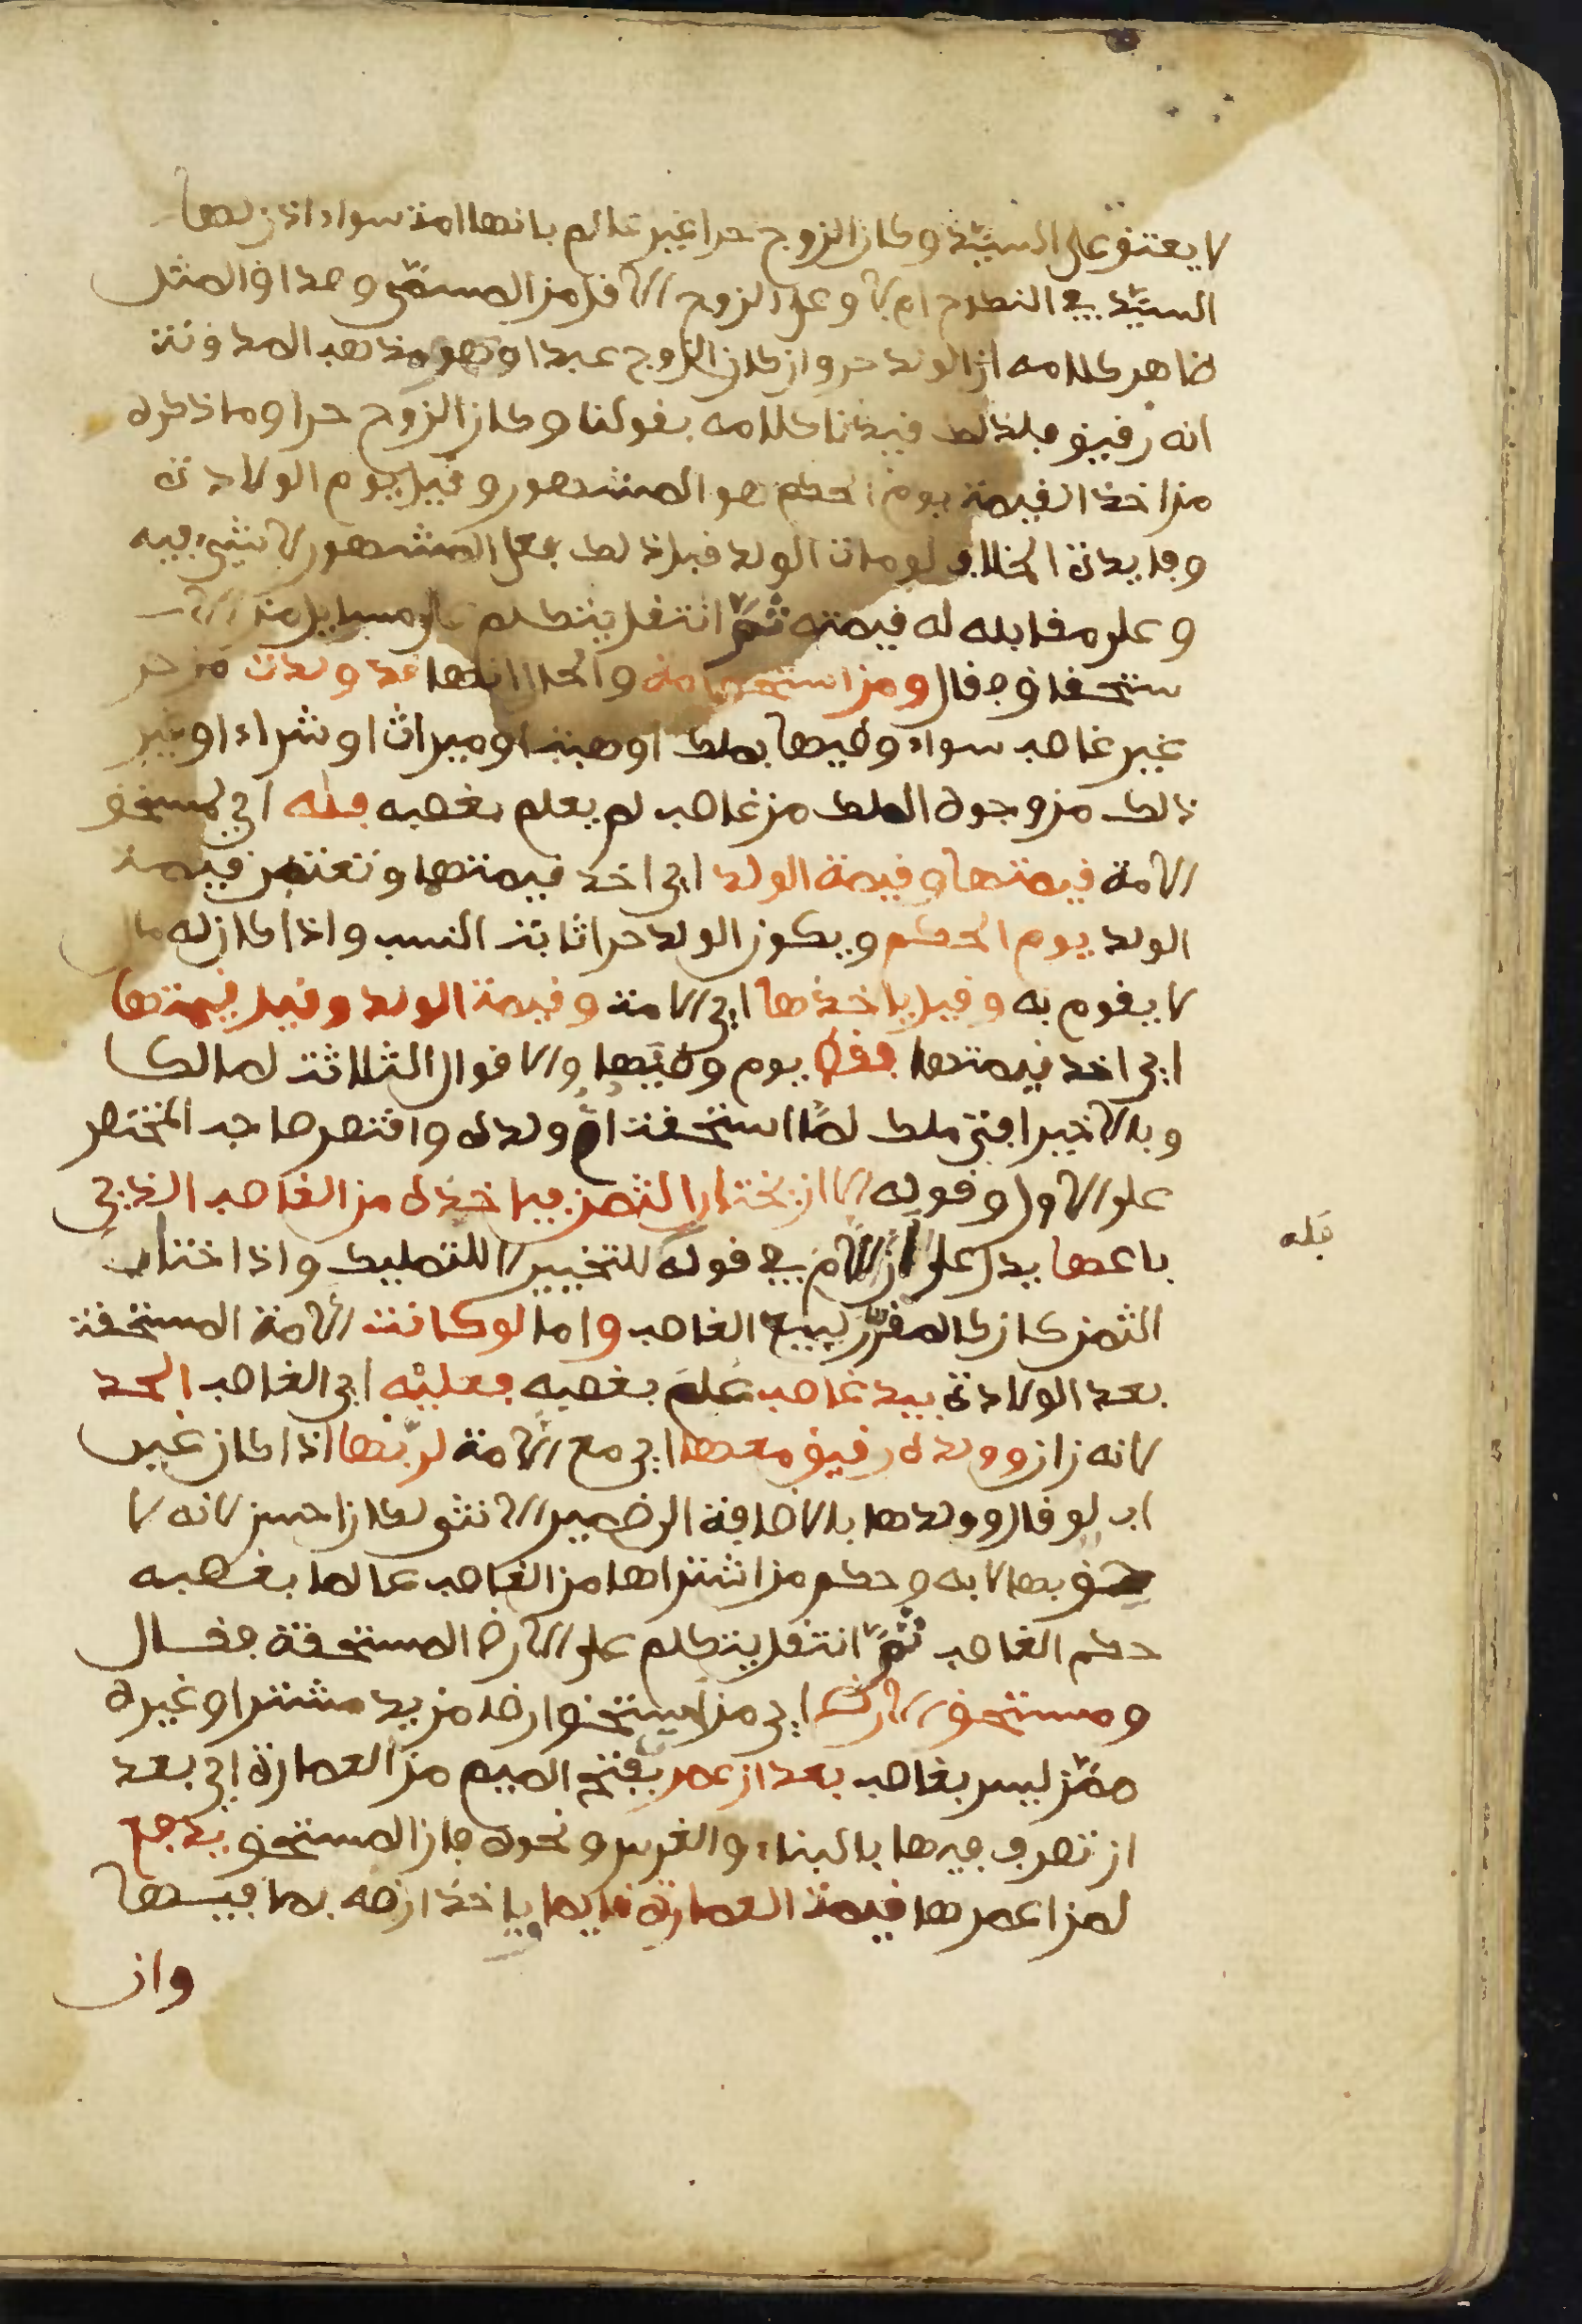 لا يعتق على السيّد وكان الزوج حرا غير عالم بانها امة سواء اذن لها
السيّد في النكاح ام لا وعلى الزوج الاقل من المسمّى وصداق المثل
ظاهر كلامه ان الولد حر وان كان الزوج عبدا وهو مذهب المدونة
انه رقيق فلذلك قيدنا كلامه بقولنا وكان الزوج حرا وما ذكره
من اخذ القيمة يوم الحكم هو المشهور وقيل يوم الولادة
وفايدة الخلاف لو مات الولد قبل ذلك فعلى المشهور لا شيء فيه
وعلى مقابله له قيمته ثمّ انتقل يتكلم على مسايل من الا
ستحقاق فقال ومن استحق امة والحال انها قد ولدت من حر
غير غاصب سواء وطيها بملك او هبة او ميراث او شراء او غير
ذلك من وجوه الملك من غاصب لم يعلم بغصبه فله اي لمستحق
الامة قيمتها وقيمة الولد اي اخذ قيمتها وتعتبر قيمة
الولد يوم الحكم ويكون الولد حرا ثابت النسب واذا كان له مال
لا يقوم به وقيل ياخذها اي الامة وقيمة الولد وقيل قيمتها
اي اخذ قيمتها فقط يوم وطيها والاقوال الثلاثة لمالك
وبالاخير افتى ملك لمّا استحقت امّ ولده واقتصر صاحب المختصر
على الاول وقوله الا ان يختار الثمن فياخذه من الغاصب الذي
باعها يدل على ان اللام في قوله للتخيير لا للتمليك واذا اختار
فله
الثمن كان كالمقرّر لبيع الغاصب واما لو كانت الامة المستحقة
بعد الولادة بيد غاصب علم بغصبه فعليه اي الغاصب الحد
لانه زان وولده رقيق معها اي مع الامة لربّها اذا كان غير
اب لو قال وولدها بالاضافة الى ضمير الانثى لكان احسن لانه لا
حق بها لا به وحكم من اشتراها من الغاصب عالما بغصبه
حكم الغاصب ثمّ انتقل يتكلم على الارض المستحقة فقال
ومستحق الارض اي من استحق ارضا من يد مشتر او غيره
ممّن ليس بغاصب بعد ان عمر بفتح الميم من العمارة اي بعد
ان تصرف فيها بالبناء والغرس ونحوه فان المستحق يدفع
لمن اعمرها قيمة العمارة قايما وياخذ ارضه بما فيها
وان